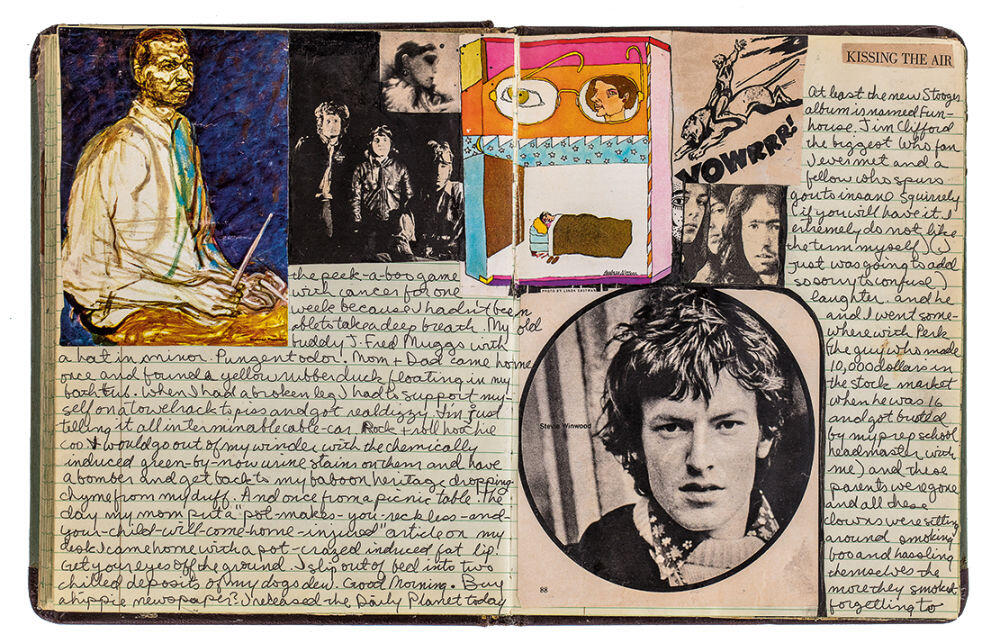 the peek-a-boo game
with cancer for one
week because I hadn't been
able to take a deep breath. My old
buddy J. Fred Muggs with
a hat in minor. Pungent odor! Mom + Dad came home
once and found a yellow rubber duck floating in my
bathtub. When I had a broken leg I had to support my-
self on a towel rack to piss and got real dizzy. I'm just
telling it all interminable cable-car. Rock + roll hootchie
coo. I would go out of my window with the chemically
induced green-by-now urine stains on them and have
a bomber and get back to my baboon heritage dropping
chyme from my duff. And once from a picnic table. The
day my mom put a "pot-makes-you-reckless-and-
your-child-will-come-home-injured" article on my
desk I came home with a pot-crazed induced fat lip.
Get your eyes off the ground. I slip out of bed into two
chilled deposits of my dog's dew. Good Morning. Buy
a hippie newspaper? I released the Daily Planet today
PHOTO BY LINDA EASTMAN
VOWRRR!
Stevie Winwood
88
KISSING THE AIR
At least the new Stooges
album is named Fun-
house. Jim Clifford
the biggest Who fan
I ever met and a
fellow who spurs
gouts insane squirrely
(if you will have it. I
extremely do not like
the term myself) (I
just was going to add
so sorry to confuse)
laughter. and he
and I went some-
where with Perk
(the guy who made
10,000 dollars in
the stock market
when he was 16
and got busted
by my prep school
headmaster with
me) and these
parents were gone
and all these
clowns were sitting
around smoking
boo and hassling
themselves the
more they smoked
forgetting to